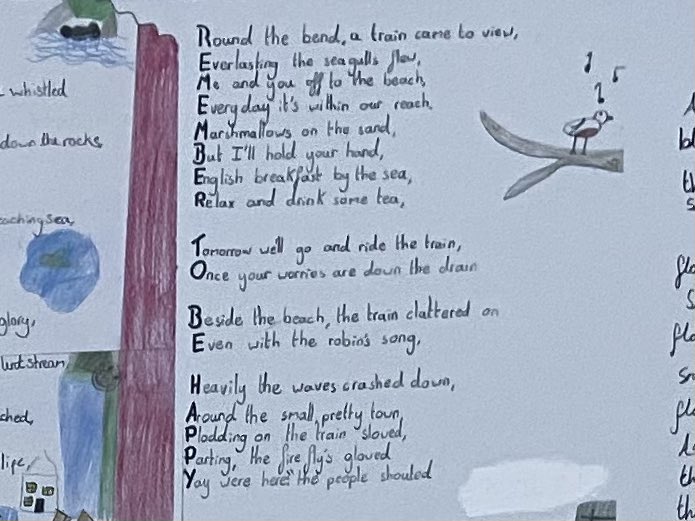 whistled
down the rocks,
Sea,
glory,
stream,
ched,
Round the bend, a train came to view,
Everlasting the seagulls flew,
Me and you off to the beach,
Everyday it's within our reach.
Marshmallows on the sand,
But I'll hold your hand,
English breakfast by the sea,
Relax and drink some tea,
Tomorrow we'll go and ride the train,
Once your worries are down the drain
Beside the beach, the train clattered on
Even with the robin's song,
Heavily the waves crashed down,
Around the small, pretty town,
Plodding on the train slowed,
Parting, the fire fly's glowed
Yay were here" the people shouted